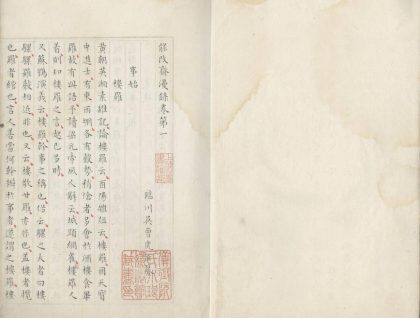 能改齋漫錄卷第一
臨川吳曾虎
事始
樓羅
黃朝英緗素雜記論樓羅云酉陽雜俎云樓羅因天寶
中進士有東西棚各有聲勢稍傖者多會於酒樓食畢
羅故有此語予讀梁元帝風人辭云城頭網雀樓羅人
著則知樓羅之言起已多時
又蘇鶚演義云樓羅幹事之稱也俗云騾之大者曰樓
騾騾羅聲相近非也又云婁敬甘羅亦非也蓋樓者攬
也羅者綰也言人善當何幹辦於事者遂謂之樓羅樓